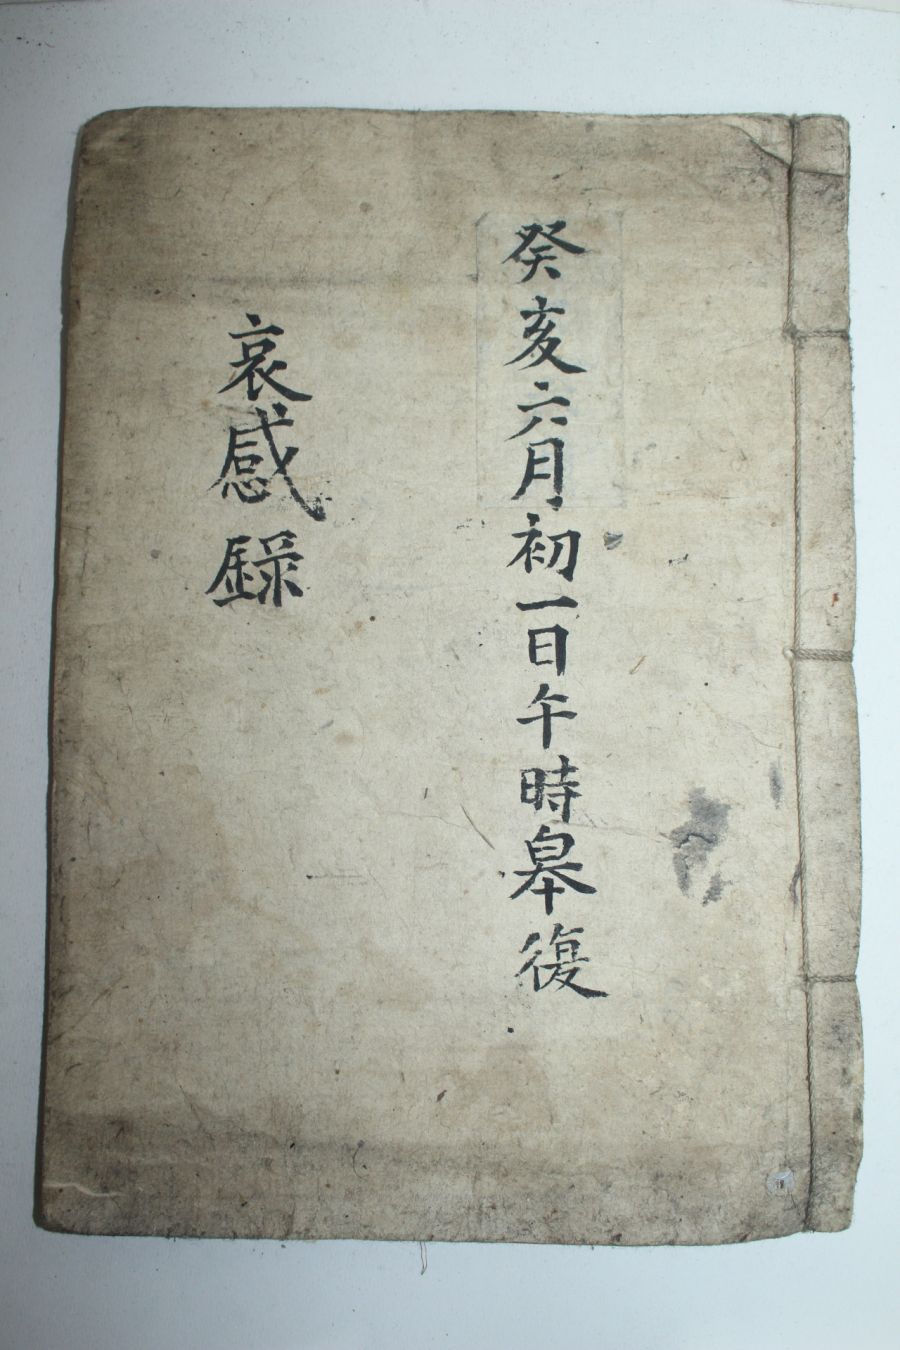 癸亥六月初一日午時皐復
哀感錄